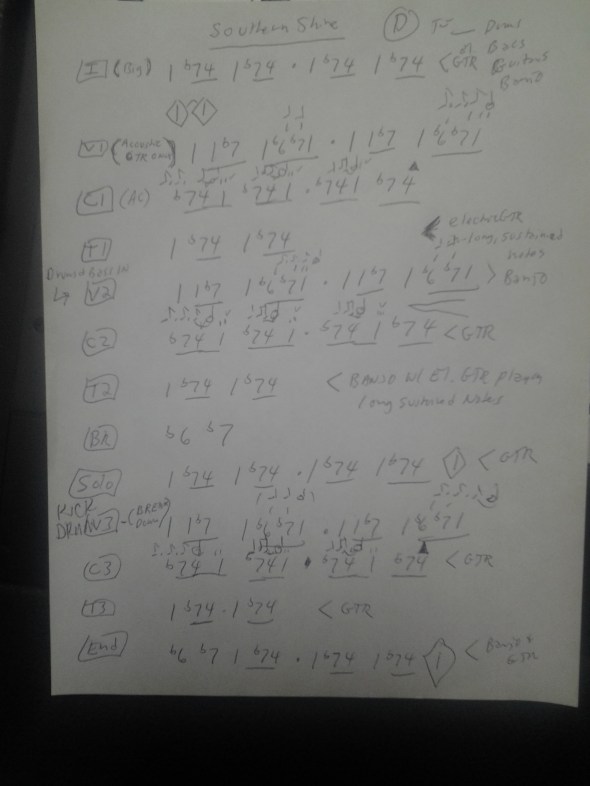 Southern Shine D Drums
I (Big) 1 b74 1 b74 • 1 b74 1 b74 < GTR el Bass Guitars Banjo
1 1
V1 (Acoustic GTR only) 1 1b7 1b6b71 • 1 1b7 1b6b71
C1 (AC) b74 1 b741 • b741 b74
T1 1 b74 1 b74 < electric GTR - long, sustained notes
Drums & Bass in
V2 1 1b7 1b6b71 • 1 1b7 1b6b71 > Banjo
C2 b74 1 b74 1 • b74 1 b74 < GTR
T2 1 b74 1 b74 < BANJO W/ El. GTR Playing long sustained notes
BR b6 b7
Solo 1 b74 1 b74 • 1 b74 1 b74 1 < GTR
KICK DRUM V3 - (BREAK Down) 1 1b7 1b6b71 • 1 1b7 1b6b71
C3 b74 1 b741 • b74 1 b74 < GTR
T3 1 b74 • 1 b74 < GTR
End b6 b7 1 b74 • 1 b74 1 b74 1 < Banjo & GTR